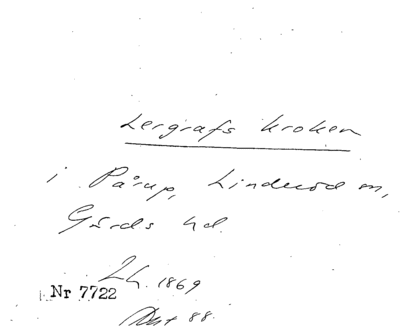 Lergrafs kroken
i Pårup, Linderöd sn,
Gärds hd.
Lh. 1869
Nr 7722
Avt 88.